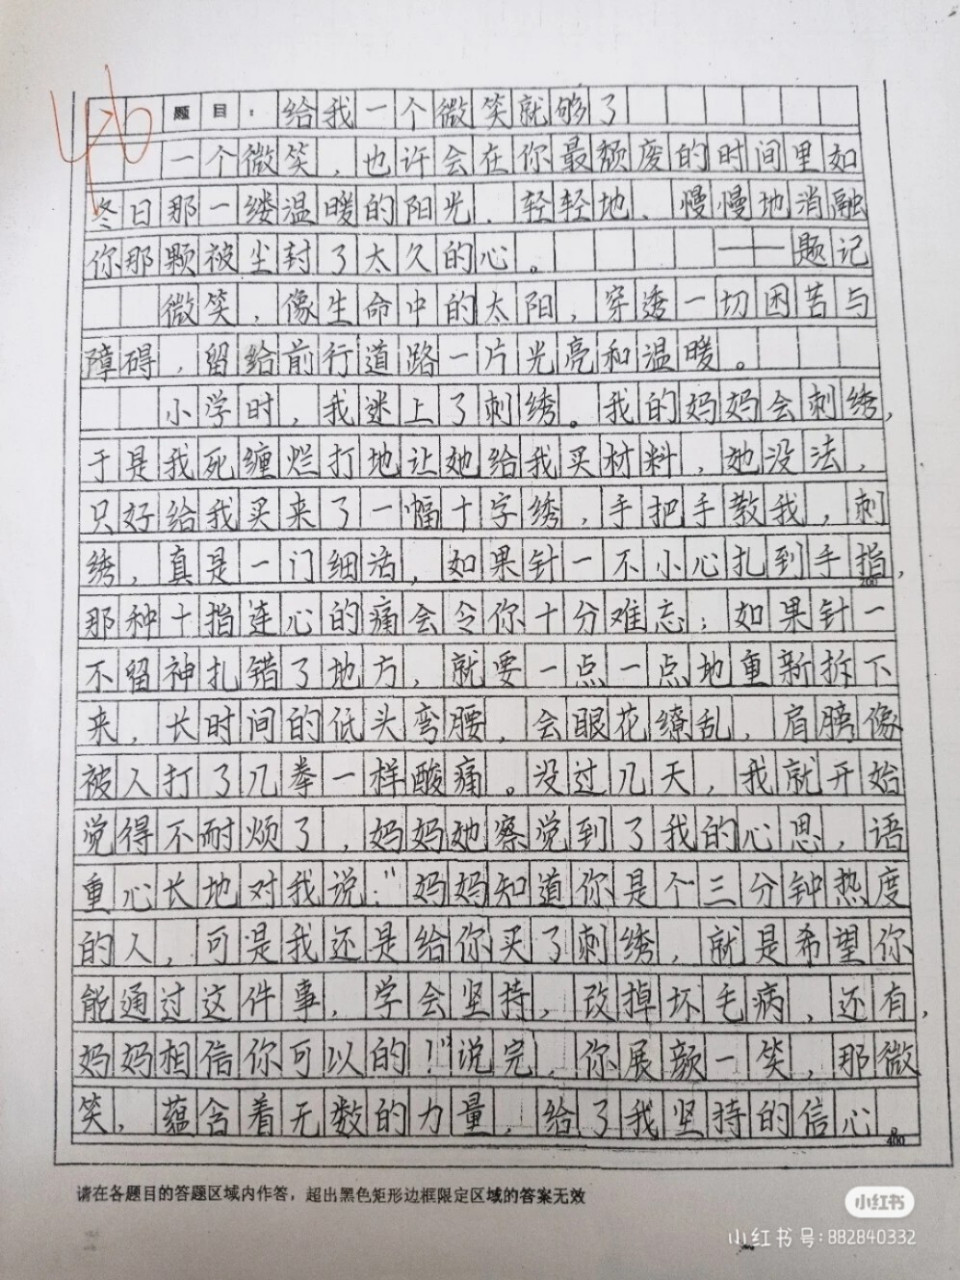 46
题目：给我一个微笑就够了
一个微笑，也许会在你最颓废的时间里如
冬日那一缕温暖的阳光，轻轻地、慢慢地消融
你那颗被尘封了太久的心。——题记
微笑，像生命中的太阳，穿透一切困苦与
障碍，留给前行道路一片光亮和温暖。
小学时，我迷上了刺绣。我的妈妈会刺绣，
于是我死缠烂打地让她给我买材料，她没法，
只好给我买来了一幅十字绣，手把手教我，刺
绣，真是一门细活，如果针一不小心扎到手指，
200
那种十指连心的痛会令你十分难忘；如果针一
不留神扎错了地方，就要一点一点地重新拆下
来，长时间的低头弯腰，会眼花缭乱，肩膀像
被人打了几拳一样酸痛。没过几天，我就开始
觉得不耐烦了，妈妈她察觉到了我的心思，语
重心长地对我说：“妈妈知道你是个三分钟热度
的人，可是我还是给你买了刺绣，就是希望你
能通过这件事，学会坚持，改掉坏毛病，还有，
妈妈相信你可以的！”说完，你展颜一笑，那微
笑，蕴含着无数的力量，给了我坚持的信心。
400
请在各题目的答题区域内作答，超出黑色矩形边框限定区域的答案无效
小红书
小红书号:882840332